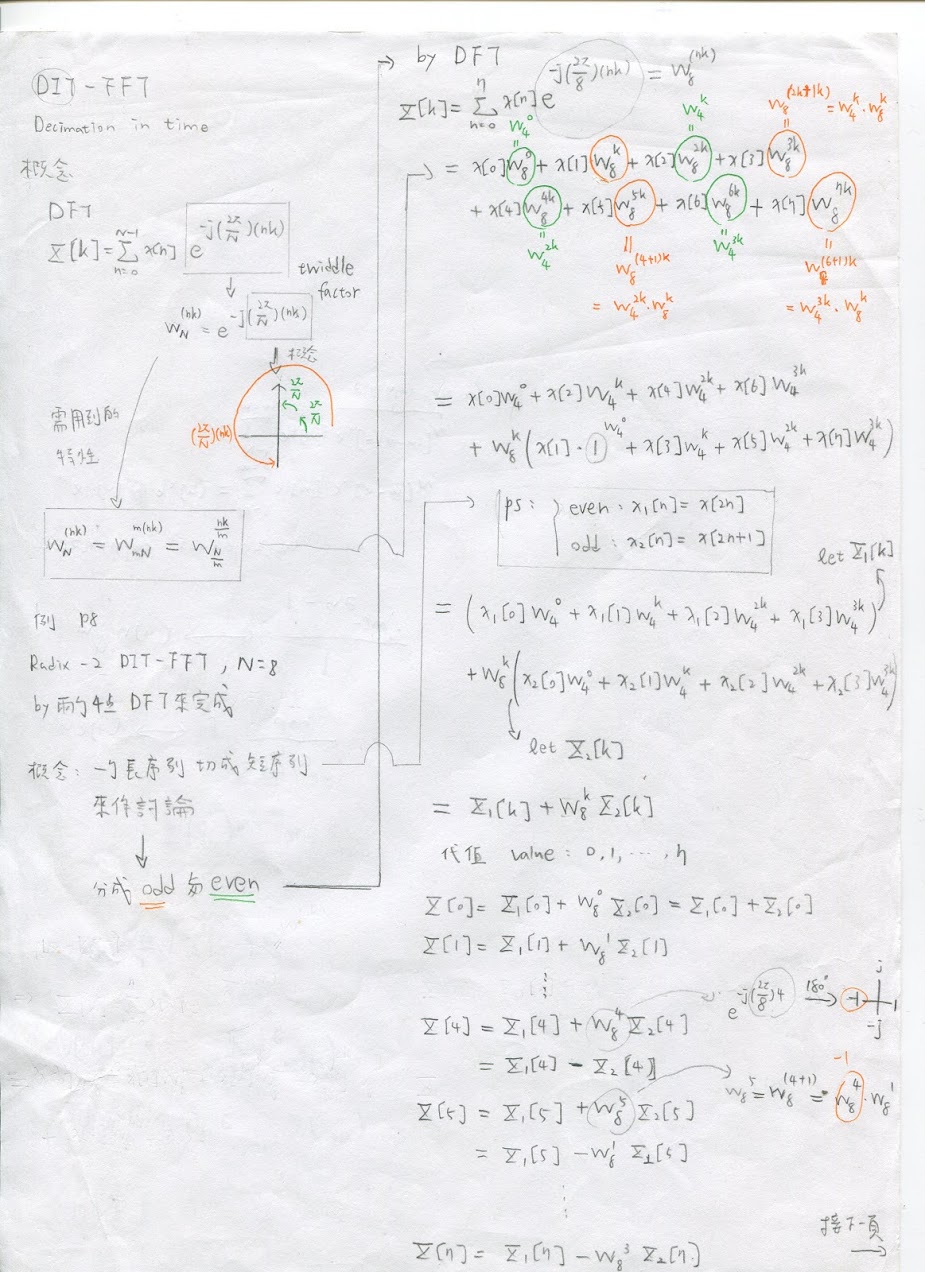 DIT-FFT
Decimation in time
概念
DFT
X[k]=∑_{n=0}^{N-1} x[n] e^{-j(2π/N)(nk)}
twiddle factor
W_N^{(nk)} = e^{-j(2π/N)(nk)}
概念
2π/N
2π/N
(2π/N)(nk)
需用到的
特性
W_N^{(nk)} = W_{mN}^{m(nk)} = W_{N/m}^{nk/m}
例 P8
Radix-2 DIT-FFT, N=8
by 兩个4点 DFT來完成
概念: 一个長序列 切成短序列
來作討論
分成 odd 與 even
by DFT
X[k]=∑_{n=0}^{7} x[n] e^{-j(2π/8)(nk)} = W_8^{(nk)}
W_4^0 W_4^k W_8^{(2k+1k)} = W_4^k · W_8^k
= x[0]W_8^0 + x[1]W_8^k + x[2]W_8^{2k} + x[3]W_8^{3k}
+ x[4]W_8^{4k} + x[5]W_8^{5k} + x[6]W_8^{6k} + x[7]W_8^{7k}
W_4^{2k} W_8^{(4+1)k} W_4^{3k} W_8^{(6+1)k}
= W_4^{2k}·W_8^k = W_4^{3k}·W_8^k
= x[0]W_4^0 + x[2]W_4^k + x[4]W_4^{2k} + x[6]W_4^{3k}
+ W_8^k (x[1]·1 W_4^0 + x[3]W_4^k + x[5]W_4^{2k} + x[7]W_4^{3k})
ps: even: x_1[n]=x[2n]
odd: x_2[n]=x[2n+1]
let X_1[k]
= (x_1[0]W_4^0 + x_1[1]W_4^k + x_1[2]W_4^{2k} + x_1[3]W_4^{3k})
+ W_8^k (x_2[0]W_4^0 + x_2[1]W_4^k + x_2[2]W_4^{2k} + x_2[3]W_4^{3k})
let X_2[k]
= X_1[k] + W_8^k X_2[k]
代值 value: 0,1,…,7
X[0]= X_1[0] + W_8^0 X_2[0] = X_1[0]+X_2[0]
X[1]= X_1[1] + W_8^1 X_2[1]
⋮
X[4] = X_1[4] + W_8^4 X_2[4]
e^{-j(2π/8)4} 180° → -1
j
1
-j
= X_1[4] - X_2[4]
X[5] = X_1[5] + W_8^5 X_2[5]
-1
W_8^5 = W_8^{(4+1)} = W_8^4 · W_8^1
= X_1[5] - W_8^1 X_2[5]
⋮
X[7] = X_1[7] - W_8^3 X_2[7]
接下一頁 →